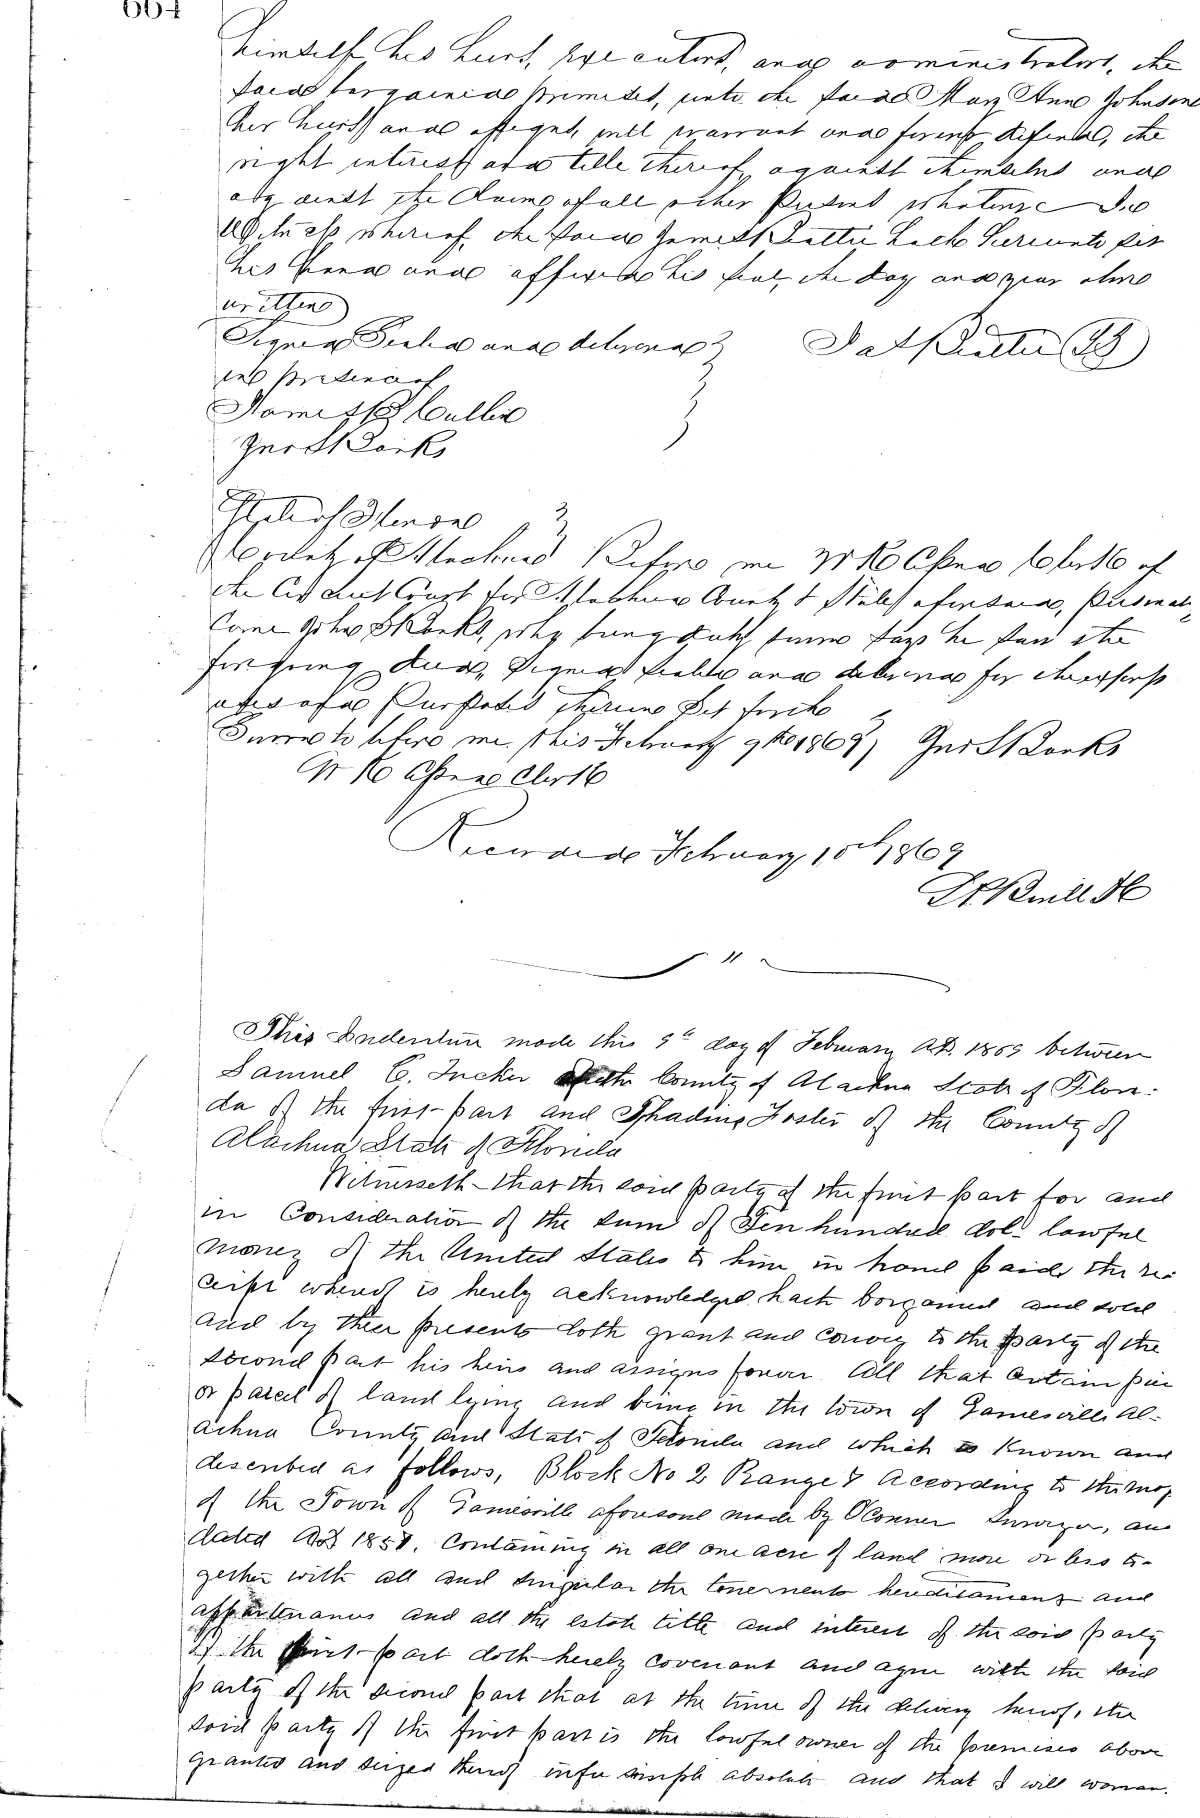 664
himself his heirs, executors, and administrators, the
said bargained premises, unto the said Mary Ann Johnson
her heirs and assigns, will warrant and forever defend, the
right interest and title thereof, against themselves and
against the claims of all other persons whatever In
Witness whereof, the said James Beattie hath hereunto set
his hand and affixed his seal, the day and year above
written
Signed Sealed and delivered
in presence of
Jas Beattie
James B Cullen
State of Florida
County of Alachua Before me W K Cessna Clerk of
the Circuit Court for Alachua County & State aforesaid, personal
Came John who being duly sworn says he saw the
foregoing deed, Signed sealed and delivered for the express
uses and purposes therein Set forth
Sworn to before me this February 9th 1869
W K Cessna Clerk
Recorded February 10th 1869
This Indenture made this 9th day of February AD. 1869 between
Samuel C. Tucker of the County of Alachua State of Flori-
da of the first part and Foster of the County of
Alachua State of Florida
Witnesseth that the said party of the first part for and
in Consideration of the sum of Ten hundred dols lawful
money of the United States to him in hand paid the re-
ceipt whereof is hereby acknowledged hath bargained and sold
and by these presents doth grant and convey to the party of the
second part his heirs and assigns forever all that certain piece
or parcel of land lying and being in the town of Gainesville Al-
achua County and State of Florida and which is Known and
described as follows, Block No 2 Range According to the map
of the Town of Gainesville aforesaid made by O'Conner Surveyor, and
dated AD Containing in all one acre of land more or less to-
gether with all and singular the tenements hereditaments and
appurtenances and all the estate title and interest of the said party
of the first part doth hereby covenant and agree with the said
party of the second part that at the time of the delivery hereof, the
said party of the first part is the lawful owner of the premises above
granted and seized thereof in fee simple absolute and that I will warran-